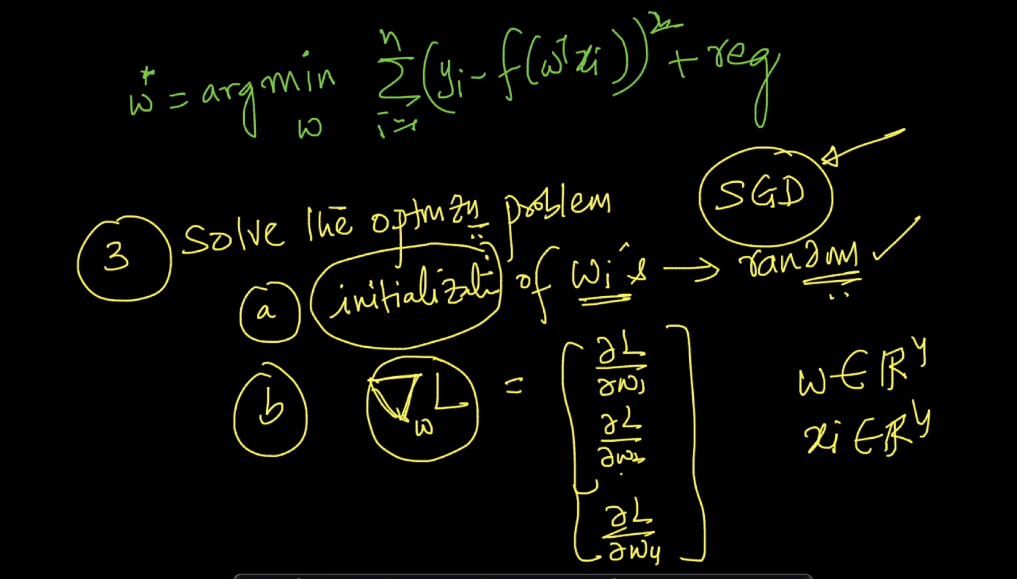 w* = argmin_w Σ_{i=1}^{n} (y_i - f(w^T x_i))^2 + reg
SGD
3 Solve the optmzn problem
a initializati of wi's → random ✓
b ∇_w L = [ ∂L/∂w1
∂L/∂w2
∂L/∂w4 ]
w ∈ R^4
xi ∈ R^4